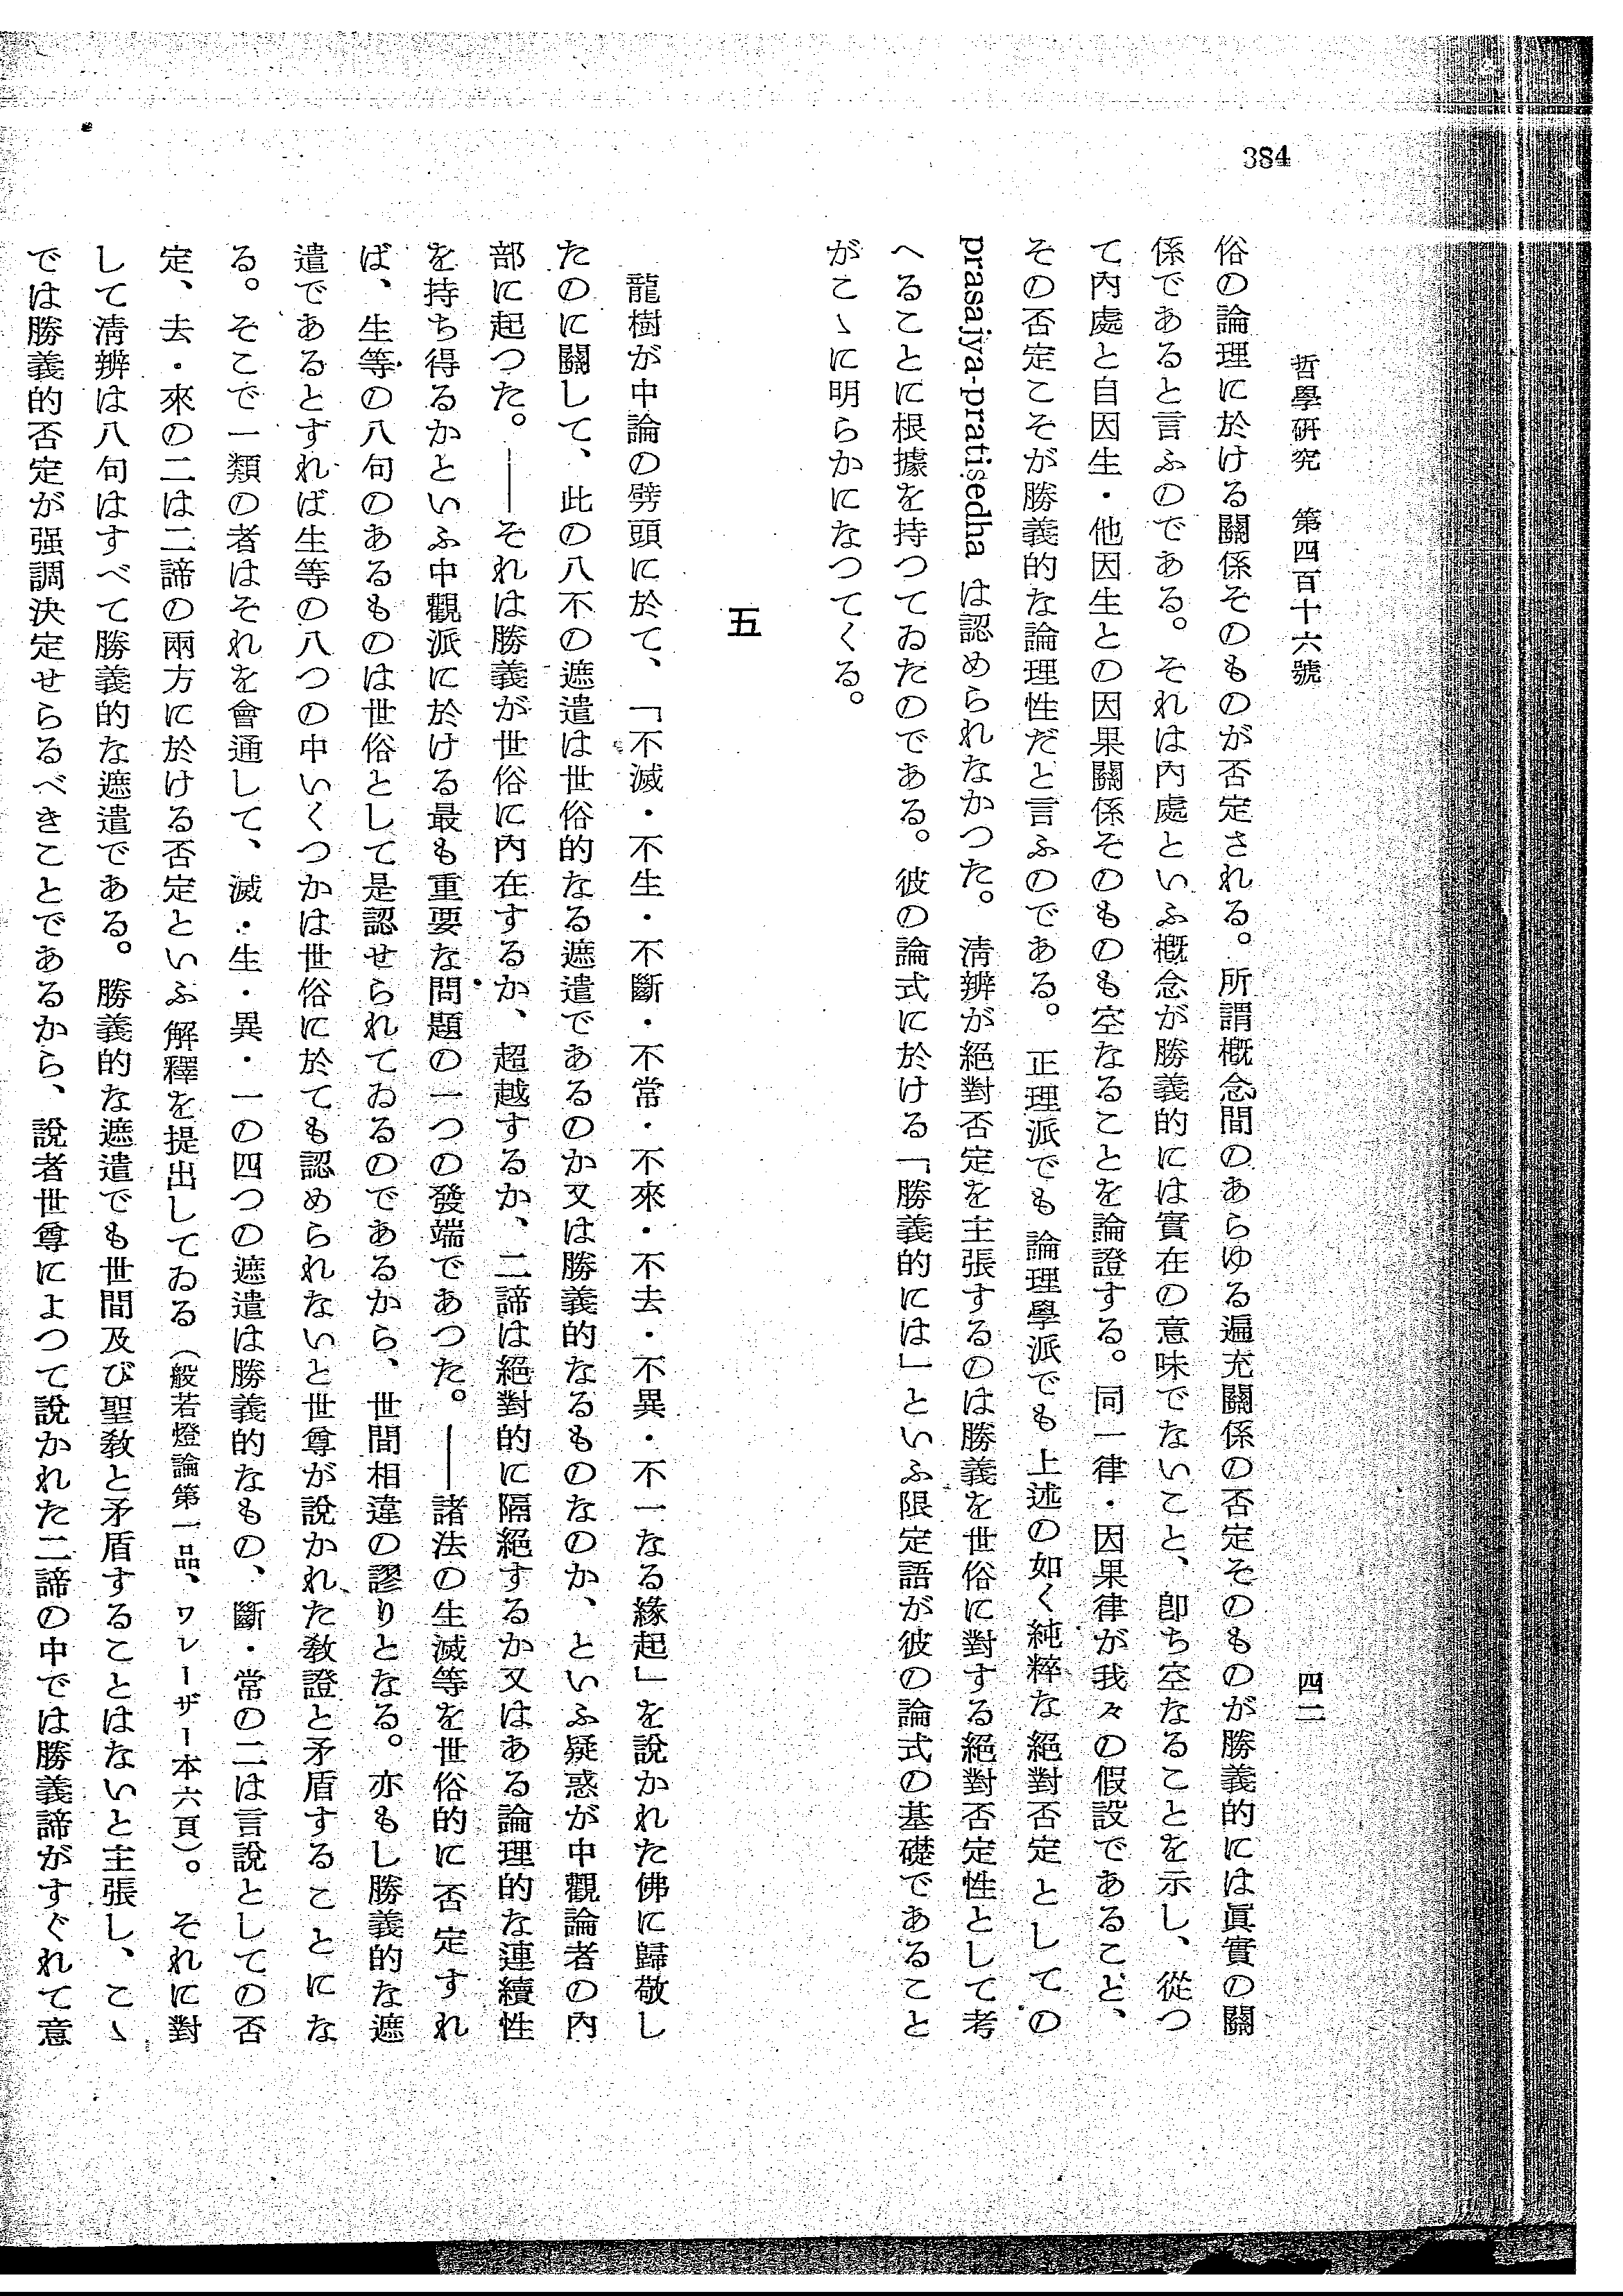 384
哲學硏究　第四百十六號
四二
俗の論理に於ける關係そのものが否定される。所謂槪念間のあらゆる遍充關係の否定そのものが勝義的には眞實の關
係であると言ふのである。それは內處といふ槪念が勝義的には實在の意味でないこと、卽ち空なることを示し、從つ
て內處と自因生・他因生との因果關係そのものも空なることを論證する。同一律・因果律が我々の假設であること、
その否定こそが勝義的な論理性だと言ふのである。正理派でも論理學派でも上述の如く純粹な絕對否定としての
prasajya-pratiṣedha は認められなかつた。淸辨が絕對否定を主張するのは勝義を世俗に對する絕對否定性として考
へることに根據を持つてゐたのである。彼の論式に於ける「勝義的には」といふ限定語が彼の論式の基礎であること
がこゝに明らかになつてくる。
五
龍樹が中論の劈頭に於て、「不滅・不生・不斷・不常・不來・不去・不異・不一なる緣起」を說かれた佛に歸敬し
たのに關して、此の八不の遮遣は世俗的なる遮遣であるのか又は勝義的なるものなのか、といふ疑惑が中觀論者の內
部に起つた。――それは勝義が世俗に內在するか、超越するか、二諦は絕對的に隔絕するか又はある論理的な連續性
を持ち得るかといふ中觀派に於ける最も重要な問題の一つの發端であつた。――諸法の生滅等を世俗的に否定すれ
ば、生等の八句のあるものは世俗として是認せられてゐるのであるから、世間相違の謬りとなる。亦もし勝義的な遮
遣であるとすれば生等の八つの中いくつかは世俗に於ても認められないと世尊が說かれた敎證と矛盾することにな
る。そこで一類の者はそれを會通して、滅・生・異・一の四つの遮遣は勝義的なもの、斷・常の二は言說としての否
定、去・來の二は二諦の兩方に於ける否定といふ解釋を提出してゐる（般若燈論第一品、ワレーザー本六頁）。それに對
して淸辨は八句はすべて勝義的な遮遣である。勝義的な遮遣でも世間及び聖敎と矛盾することはないと主張し、こゝ
では勝義的否定が强調決定せらるべきことであるから、說者世尊によつて說かれた二諦の中では勝義諦がすぐれて意